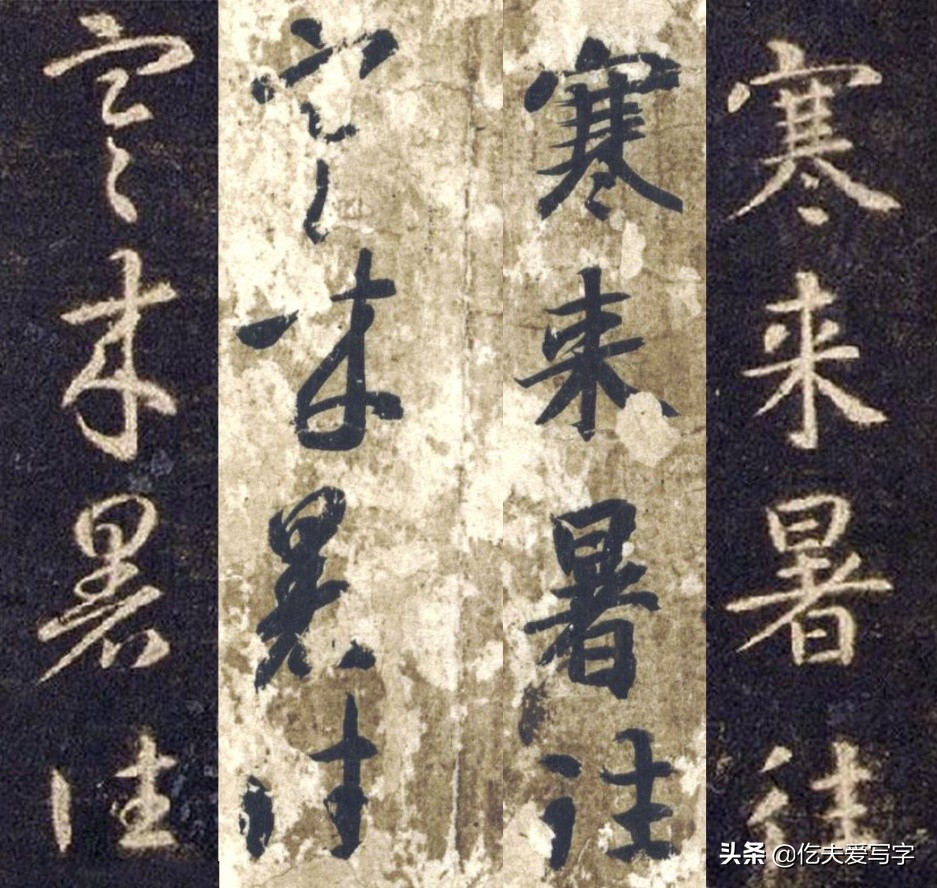 寒来暑往
寒来暑往
寒来暑往
寒来暑往
头条 @仡夫爱写字